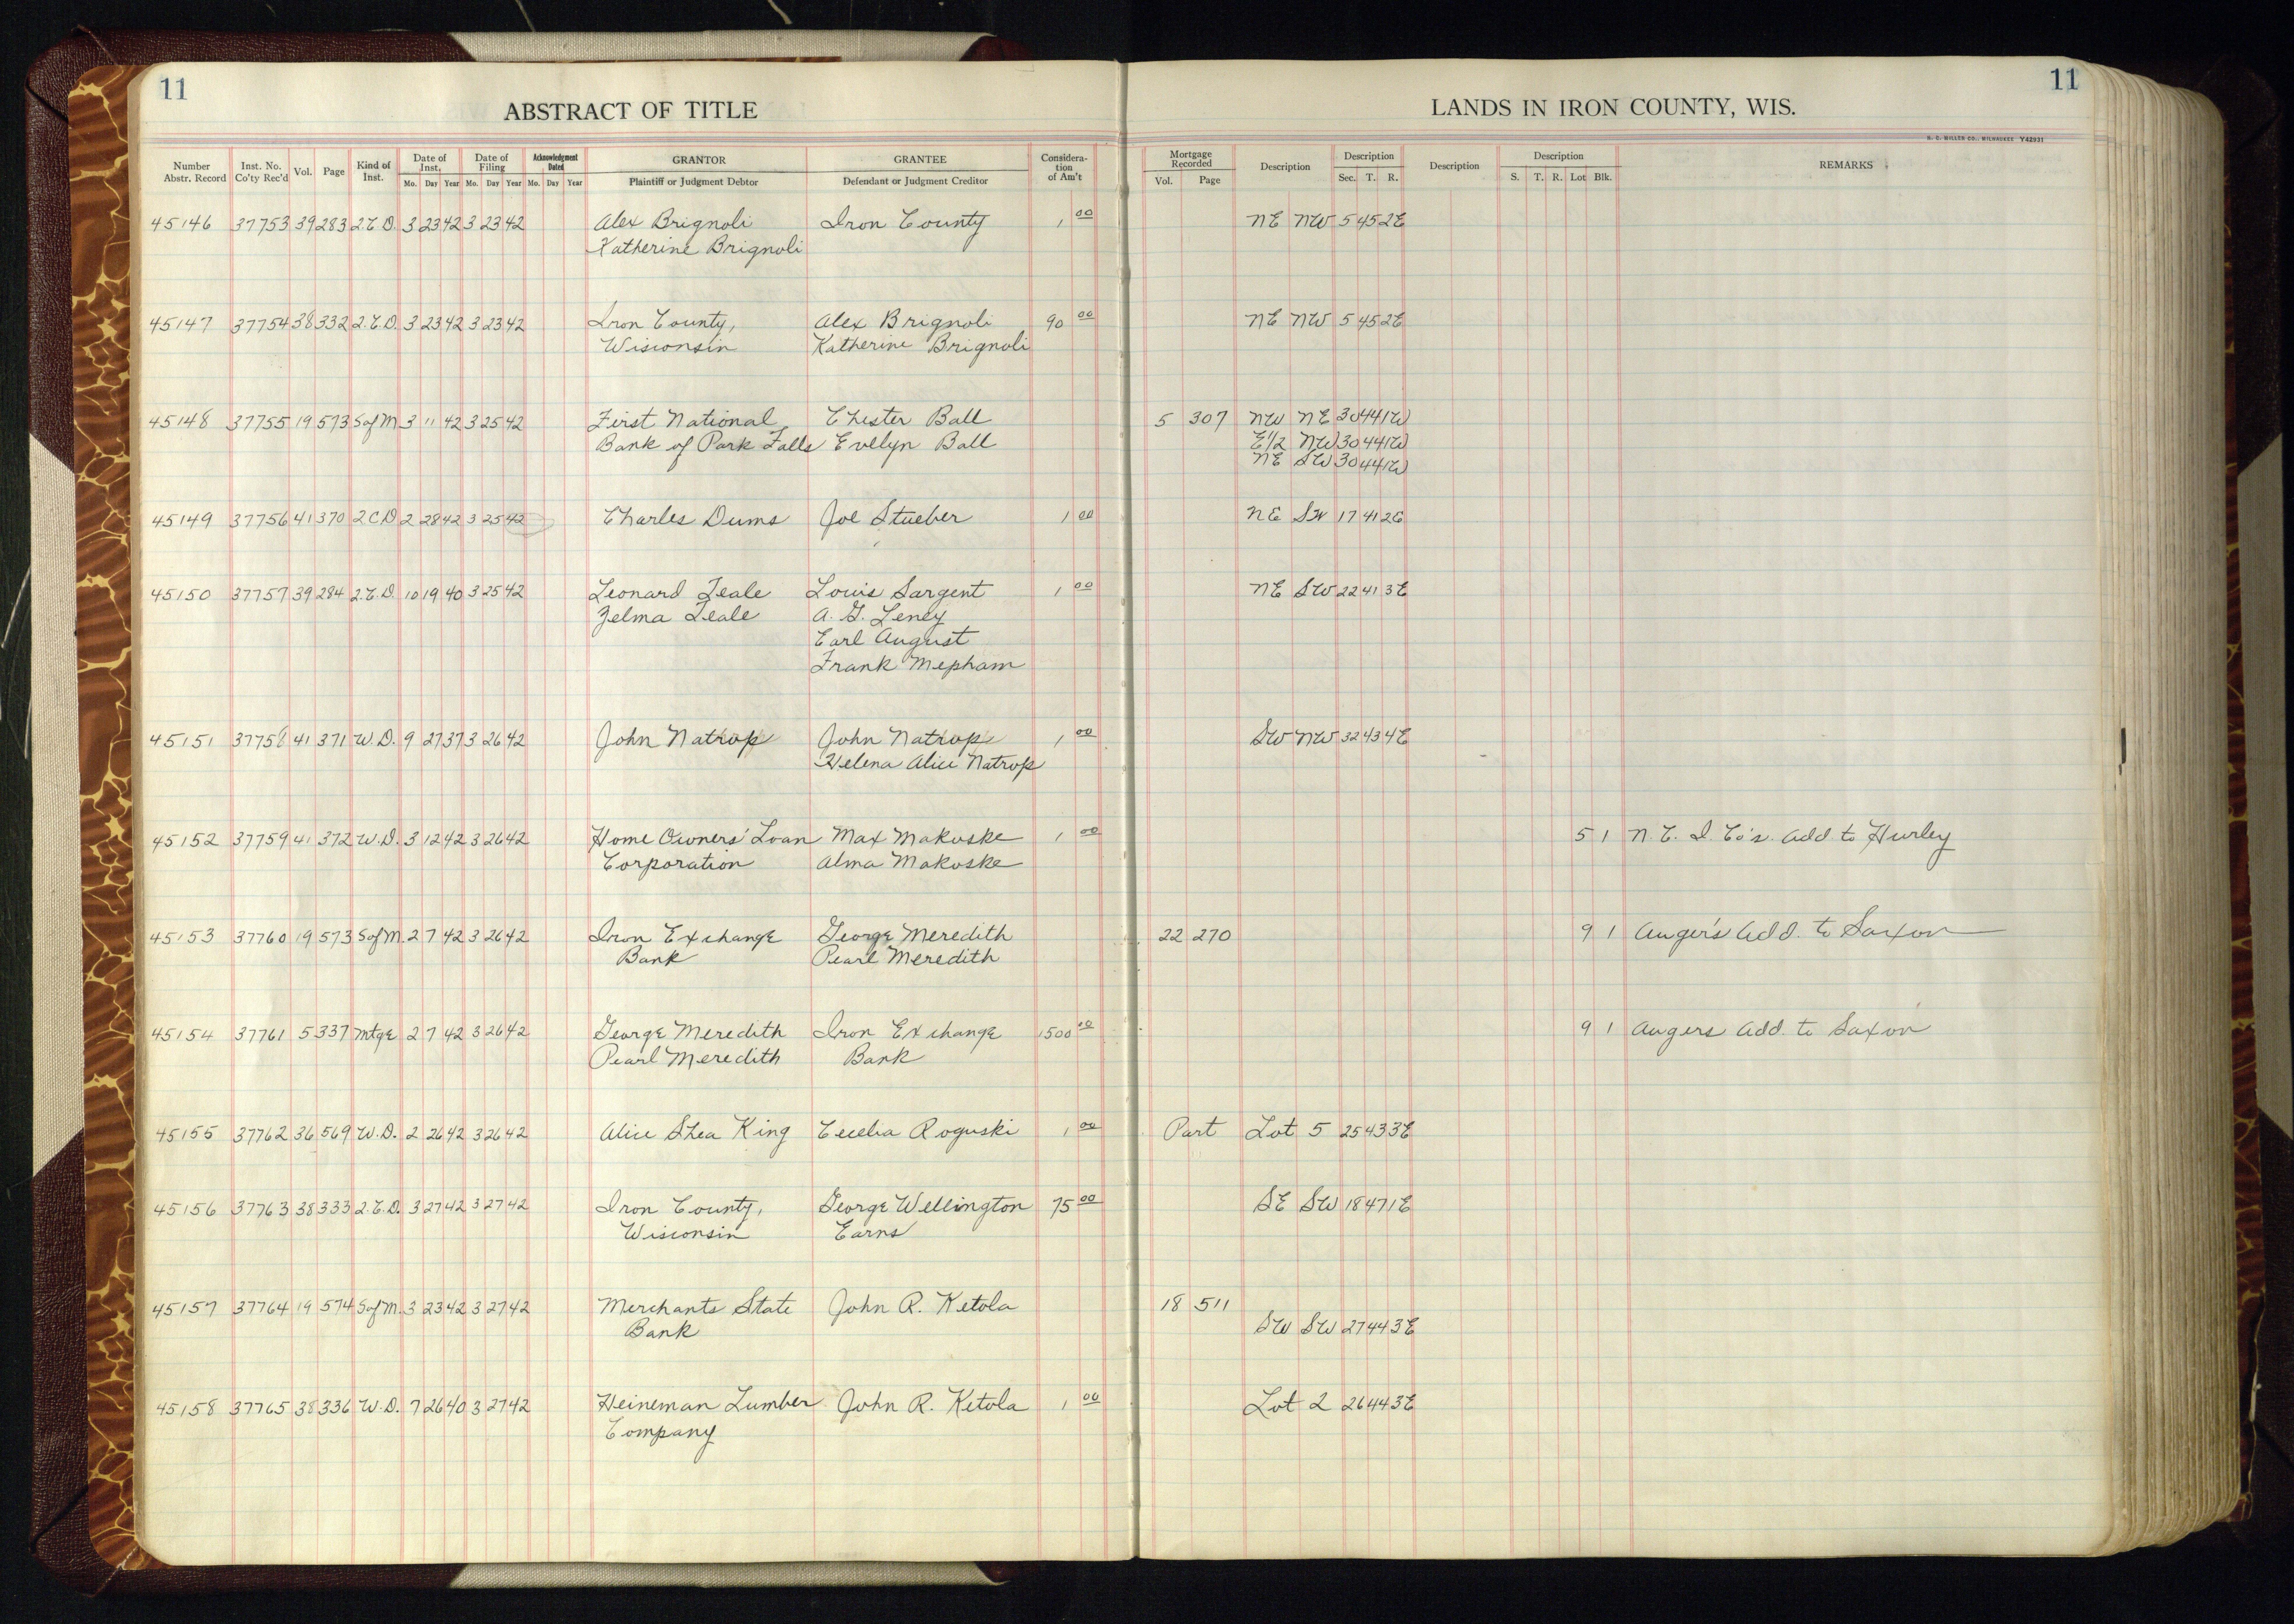 11
ABSTRACT OF TITLE
Number Abstr. Record Inst. No. Co'ty Rec'd Vol. Page Kind of Inst. Date of Inst. Mo. Day Year Date of Filing Mo. Day Year Acknowledgment Dated Mo. Day Year GRANTOR Plaintiff or Judgment Debtor GRANTEE Defendant or Judgment Creditor Considera- tion of Am't
11
LANDS IN IRON COUNTY, WIS.
H. C. MILLER CO., MILWAUKEE Y42931
Mortgage Recorded Vol. Page Description Description Sec. T. R. Description Description S. T. R. Lot Blk. REMARKS
45146 37753 39 283 2.C.D. 3 23 42 3 23 42 Alex Brignoli Iron County 1 00 NE NW 5 45 2E
Katherine Brignoli
45147 37754 38 332 2.C.D. 3 23 42 3 23 42 Iron County, Alex Brignoli 90 00 NE NW 5 45 2E
Wisconsin Katherine Brignoli
45148 37755 19 573 S of M 3 11 42 3 25 42 First National Chester Ball 5 307 NW NE 30 44 1W
Bank of Park Falls Evelyn Ball E1/2 NW 30 44 1W
NE SW 30 44 1W
45149 37756 41 370 2 C D 2 28 42 3 25 42 Charles Dums Joe Stueber 1 00 NE SW 17 41 2E
45150 37757 39 284 2.C.D. 10 19 40 3 25 42 Leonard Teale Louis Sargent 1 00 NE SW 22 41 3E
Zelma Teale A. G. Leney
Earl August
Frank Mepham
45151 37758 41 371 W.D. 9 27 37 3 26 42 John Natrop John Natrop 1 00 SW NW 32 43 4E
Helena Alice Natrop
45152 37759 41 372 W.D. 3 12 42 3 26 42 Home Owners' Loan Max Makoske 1 00 5 1 N. C. I. Co's. Add. to Hurley
Corporation Alma Makoske
45153 37760 19 573 S of M. 2 7 42 3 26 42 Iron Exchange George Meredith 22 270 9 1 Auger's Add. to Saxon
Bank Pearl Meredith
45154 37761 5 337 Mtge 2 7 42 3 26 42 George Meredith Iron Exchange 1500 00 9 1 Augers Add. to Saxon
Pearl Meredith Bank
45155 37762 36 569 W.D. 2 26 42 3 26 42 Alice Shea King Cecelia Roguski 1 00 Part Lot 5 25 43 3E
45156 37763 38 333 2.C.D. 3 27 42 3 27 42 Iron County, George Wellington 75 00 SE SW 18 47 1E
Wisconsin Earns
45157 37764 19 574 S of M. 3 23 42 3 27 42 Merchants State John R. Ketola 18 511
Bank SW SW 27 44 3E
45158 37765 38 336 W.D. 7 26 40 3 27 42 Heineman Lumber John R. Ketola 1 00 Lot 2 26 44 3E
Company